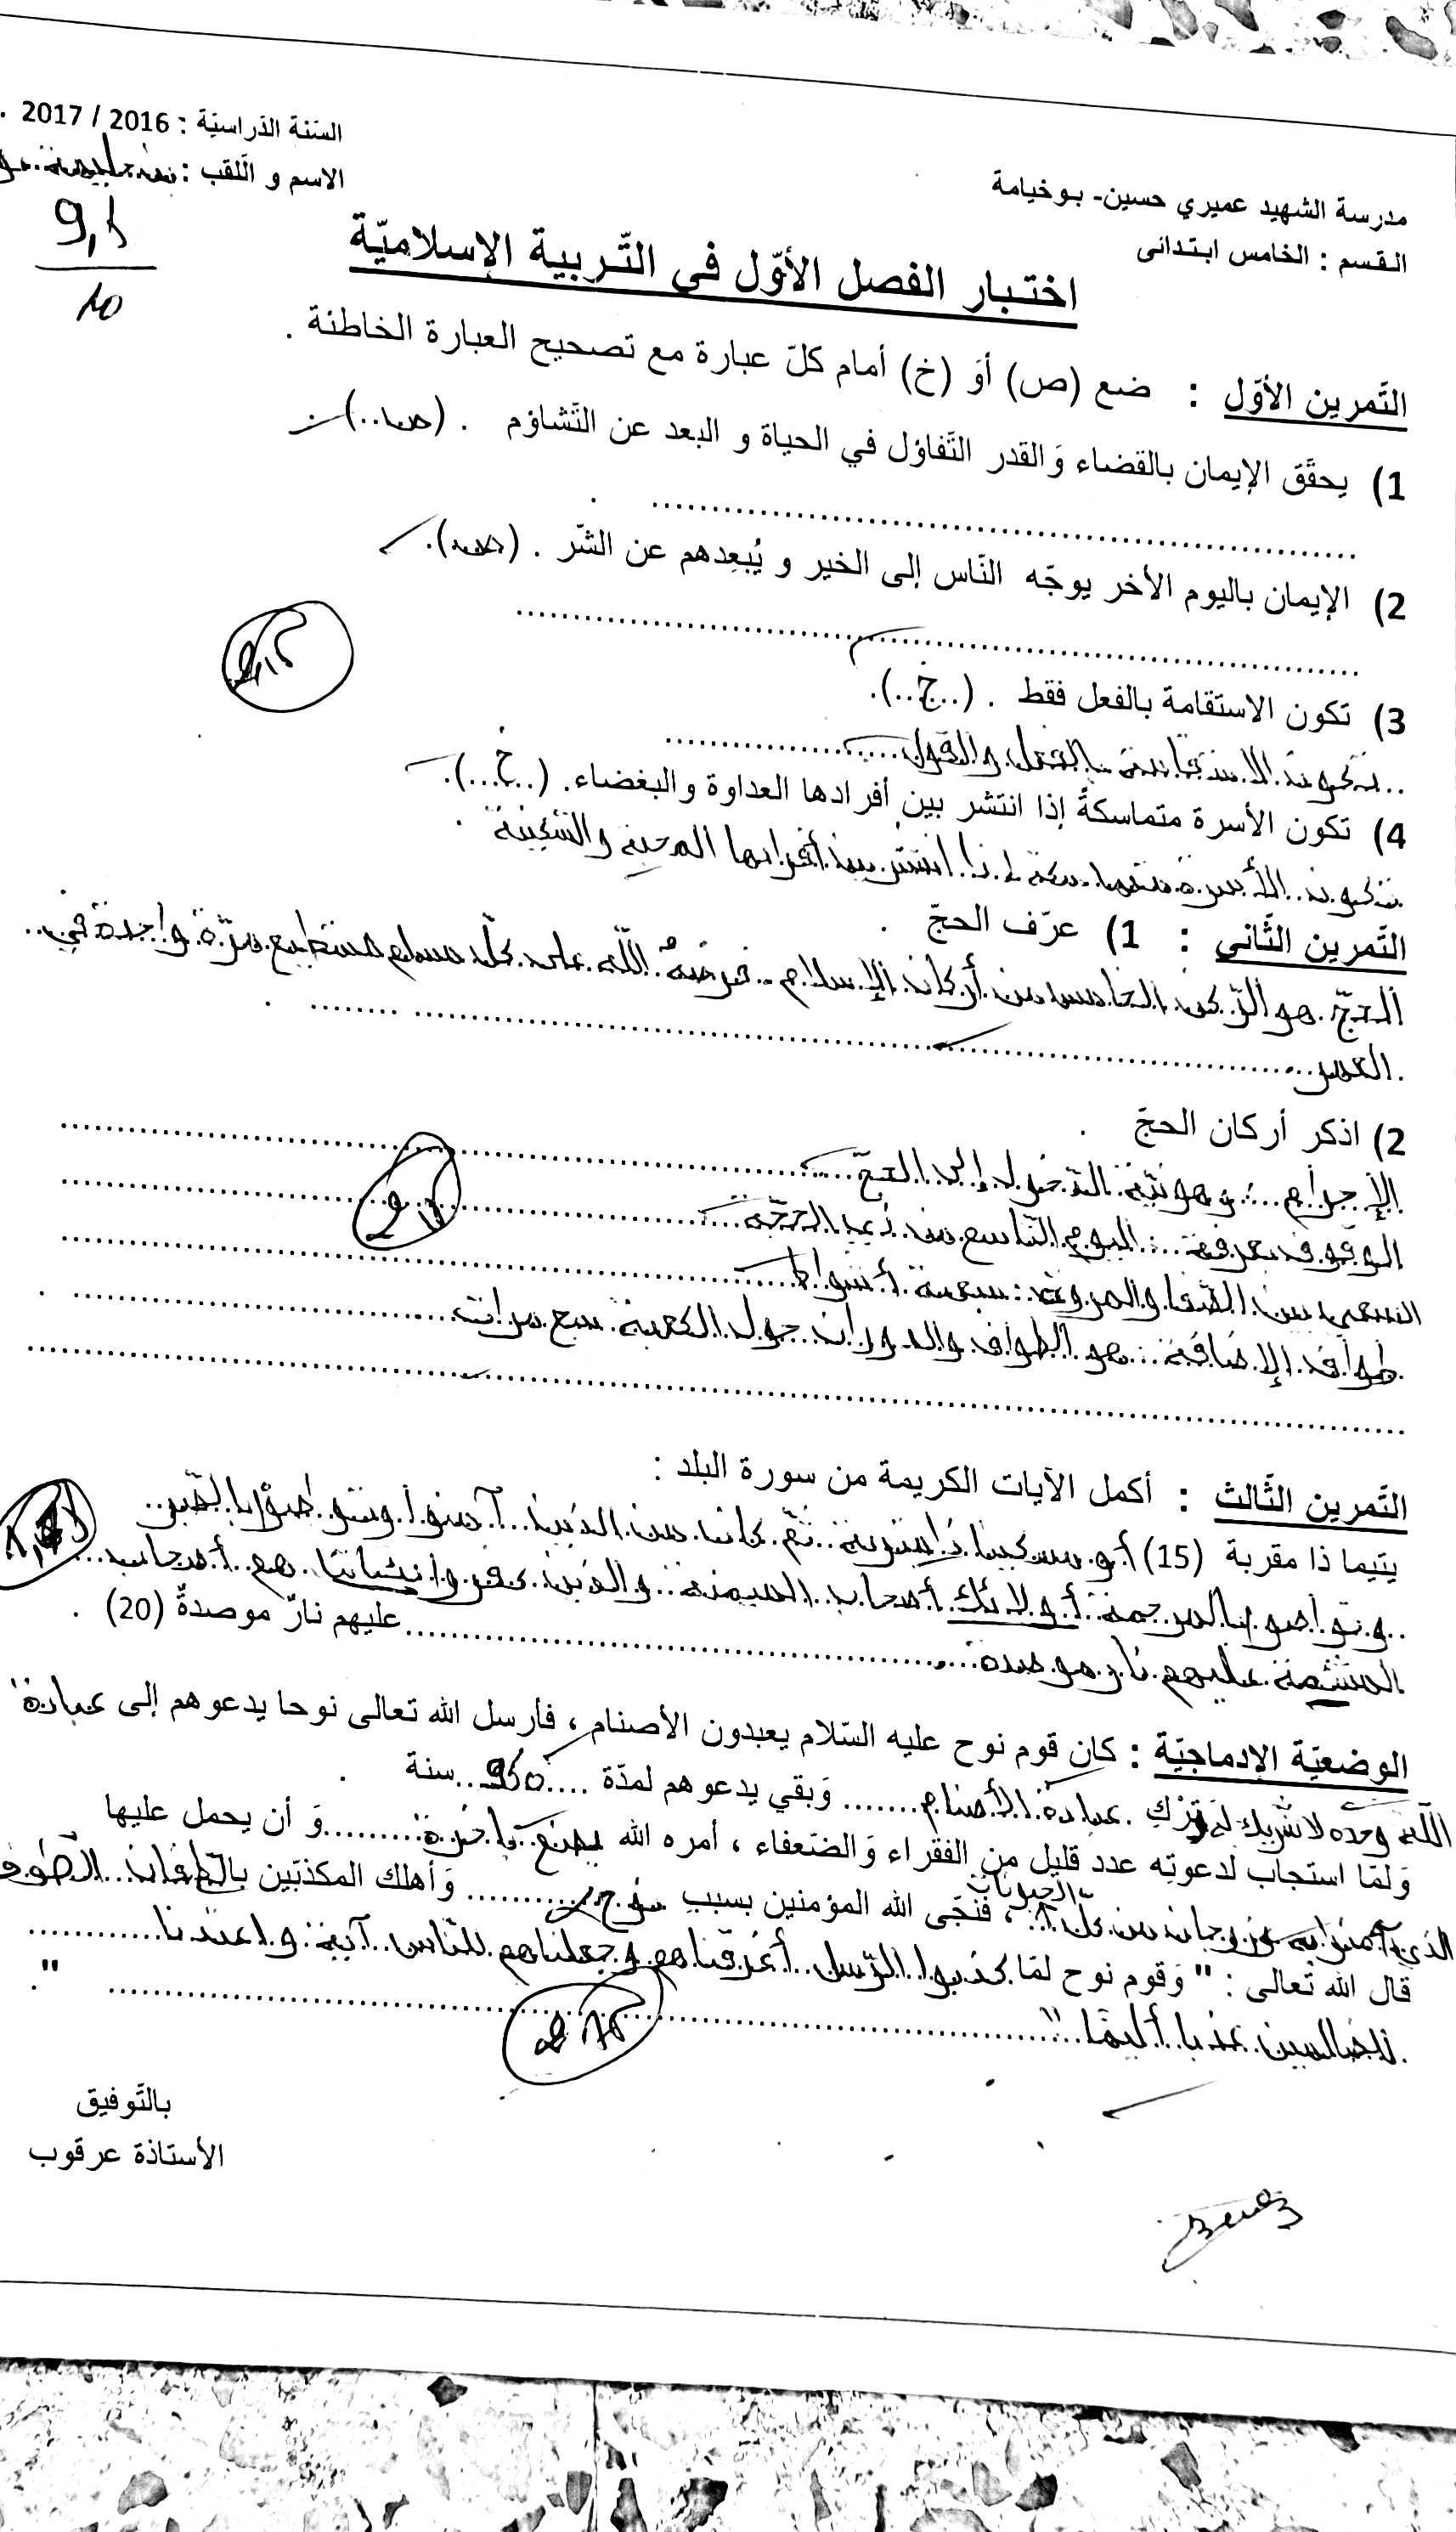 السّنة الدّراسيّة : 2016 / 2017 .
الاسم و اللّقب :
مدرسة الشهيد عميري حسين- بوخيامة
القسم : الخامس ابتدائي
9,5
10
اختبار الفصل الأوّل في التّربية الإسلاميّة
التّمرين الأوّل : ضع (ص) أو (خ) أمام كلّ عبارة مع تصحيح العبارة الخاطئة .
1) يحقّق الإيمان بالقضاء وَالقدر التّفاؤل في الحياة و البعد عن التّشاؤم . (ص)
2) الإيمان باليوم الأخر يوجّه النّاس إلى الخير و يُبعِدهم عن الشّر . (ص).
3) تكون الاستقامة بالفعل فقط . (..خ..).
تكون الاستقامة بالفعل والقول
4) تكون الأسرة متماسكةً إذا انتشر بين أفرادها العداوة والبغضاء. (..خ...).
تكون الأسرة متماسكة إذا انتشر بين أفرادها المحبة والسّكينة
التّمرين الثّاني : 1) عرّف الحجّ .
الحجّ هو الرّكن الخامس من أركان الإسلام فرضهُ الله على كلّ مسلم مستطيع مرّة واحدة في
العمر
2) اذكر أركان الحجّ .
الإحرام : وهو نيّة الدّخول إلى الحجّ
الوقوف بعرفة : اليوم التّاسع من ذي الحجّة
السعي بين الصّفا والمروة : سبعة أشواط
طواف الإضافة : هو الطواف والدوران حول الكعبة سبع مرات
التّمرين الثّالث : أكمل الآيات الكريمة من سورة البلد :
يتيما ذا مقربة (15) أو مسكينا ذا متربة ثمّ كان من الذين آمنوا وتواصوْا بالصّبر
وتواصو بالمرحمة أولائك أصحاب الميمنة والذين كفروا بئياتنا هم أصحاب
المشئمة عليهم نار موصدة عليهم نارٌ موصدةٌ (20) .
الوضعيّة الإدماجيّة : كان قوم نوح عليه السّلام يعبدون الأصنام ، فأرسل الله تعالى نوحا يدعوهم إلى عبادة
الله وحده لا شريك له وَتركِ عبادة الأصنام وَبقي يدعوهم لمدّة 950 سنة .
وَلمّا استجاب لدعوتِه عدد قليل من الفقراء وَالضّعفاء ، أمره الله بصنع باخرة وَ أن يحمل عليها
الذي آمنوا به وزوجان من كلّ الحيوانات ، فنجّى الله المؤمنين بسبب نوح وَأهلك المكذبّين بالطّوفان
قال الله تعالى : " وَقوم نوح لمّا كذبوا الرّسل أغرقناهم وجعلناهم للنّاس آية واعتدنا
للضالمين عذبا أليمًا " .
بالتّوفيق
الأستاذة عرقوب